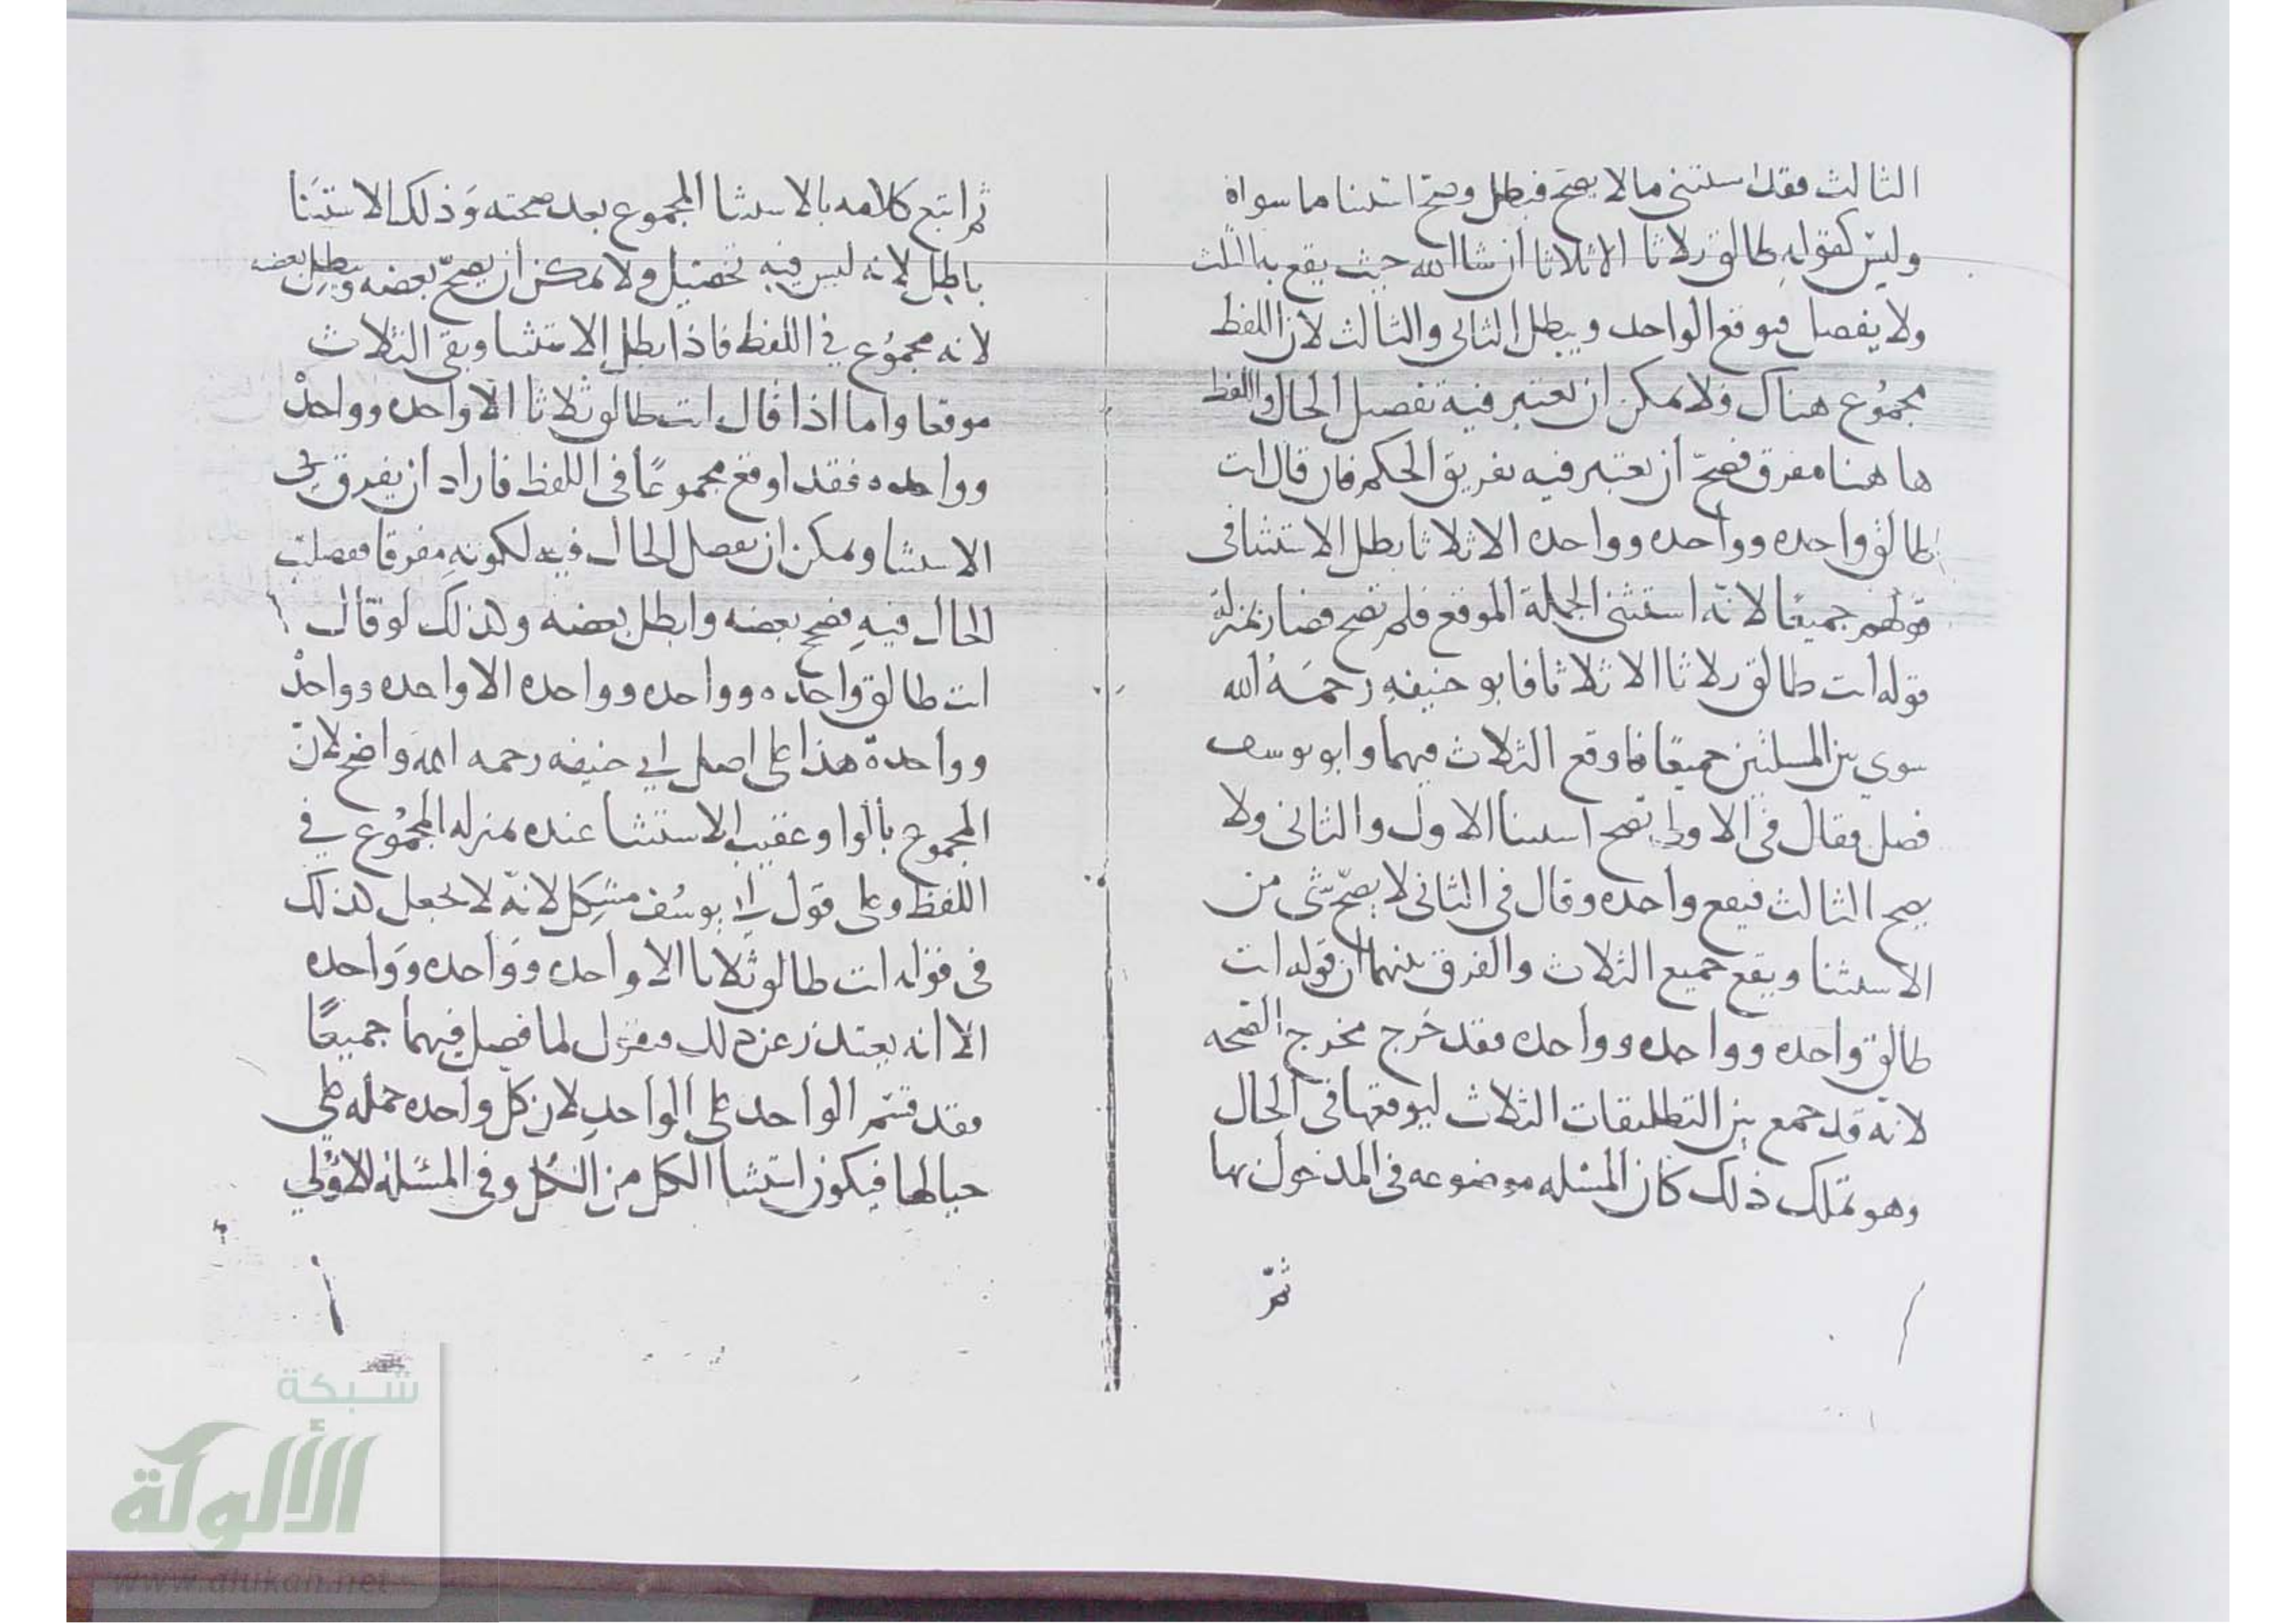 الثالث فقد استثنى ما لا يصح فبطل وصح استثنا ما سواه
وليس كقوله طالق ثلاثا الا ثلاثا ان شا الله حيث يقع بها الثلث
ولا يفصل فيوقع الواحد ويبطل الثاني والثالث لان اللفظ
مجموع هناك ولا يمكن ان يعتبر فيه تفصيل الحال واللفظ
ها هنا مفرق فصح ان يعتبر فيه تفريق الحكم فان قال انت
طالق واحده وواحده وواحده الا ثلاثا بطل الاستثنا في
قولهم جميعا لانه استثنى الجملة الموقع فلم تصح فصار بمنزلة
قوله انت طالق ثلاثا الا ثلاثا فابو حنيفه رحمه الله
سوي بين المسلتين جميعا فاوقع الثلاث فيهما وابو يوسف
فصل فقال في الاولى يصح استثنا الاول والثاني ولا
يصح الثالث فيقع واحده وقال في الثاني لا يصح شى من
الاستثنا ويقع جميع الثلاث والفرق بينهما ان قوله انت
طالق واحده وواحده وواحده فقد خرج مخرج الصحه
لانه قد جمع بين التطليقات الثلاث ليوقعها في الحال
وهو تملك ذلك كان المسله موضوعه في المدخول بها
ثم
ثم اتبع كلامه بالاستثنا المجموع بعد صحته وذلك الاستثنا
باطل لانه ليس فيه تحصيل ولا يمكن ان يصح بعضه ويبطل بعضه
لانه مجموع في اللفظ فاذا بطل الاستثنا وبقى الثلاث
موقعا واما اذا قال انت طالق ثلاثا الا واحده وواحدة
وواحده فقد اوقع مجموعا في اللفظ فاراد ان يفرق في
الاستثنا ويمكن ان يفصل الحال فيه لكونه مفرقا ففصلت
الحال فيه فصح بعضه وابطل بعضه ولذلك لو قال
انت طالق واحده وواحده وواحده الا واحده وواحدة
وواحدة هذا على اصل ابي حنيفه رحمه الله واضح لان
المجموع بالواو عقيب الاستثنا عنده بمنزله المجموع في
اللفظ وعلى قول ابي يوسف مشكل لانه لا يجعل لذلك
في قوله انت طالق ثلاثا الا واحده وواحده وواحده
الا انه يعتذر عن ذلك فيقول لما فصل فيهما جميعا
فقد قسم الواحد على الواحد لان كل واحده جمله على
حيالها فيكون استثنا الكل من الكل وفي المسله الاولي
شبكة
الألوكة
www.alukah.net